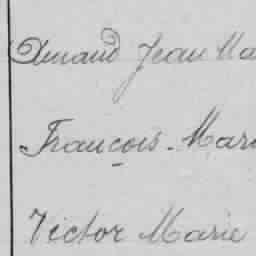 Amand Jean Ma
François. Mari
Victor Marie